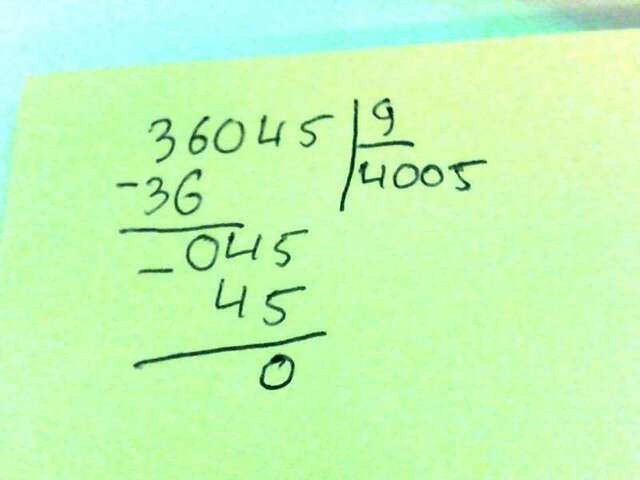 36045 9
-36 4005
-045
45
0